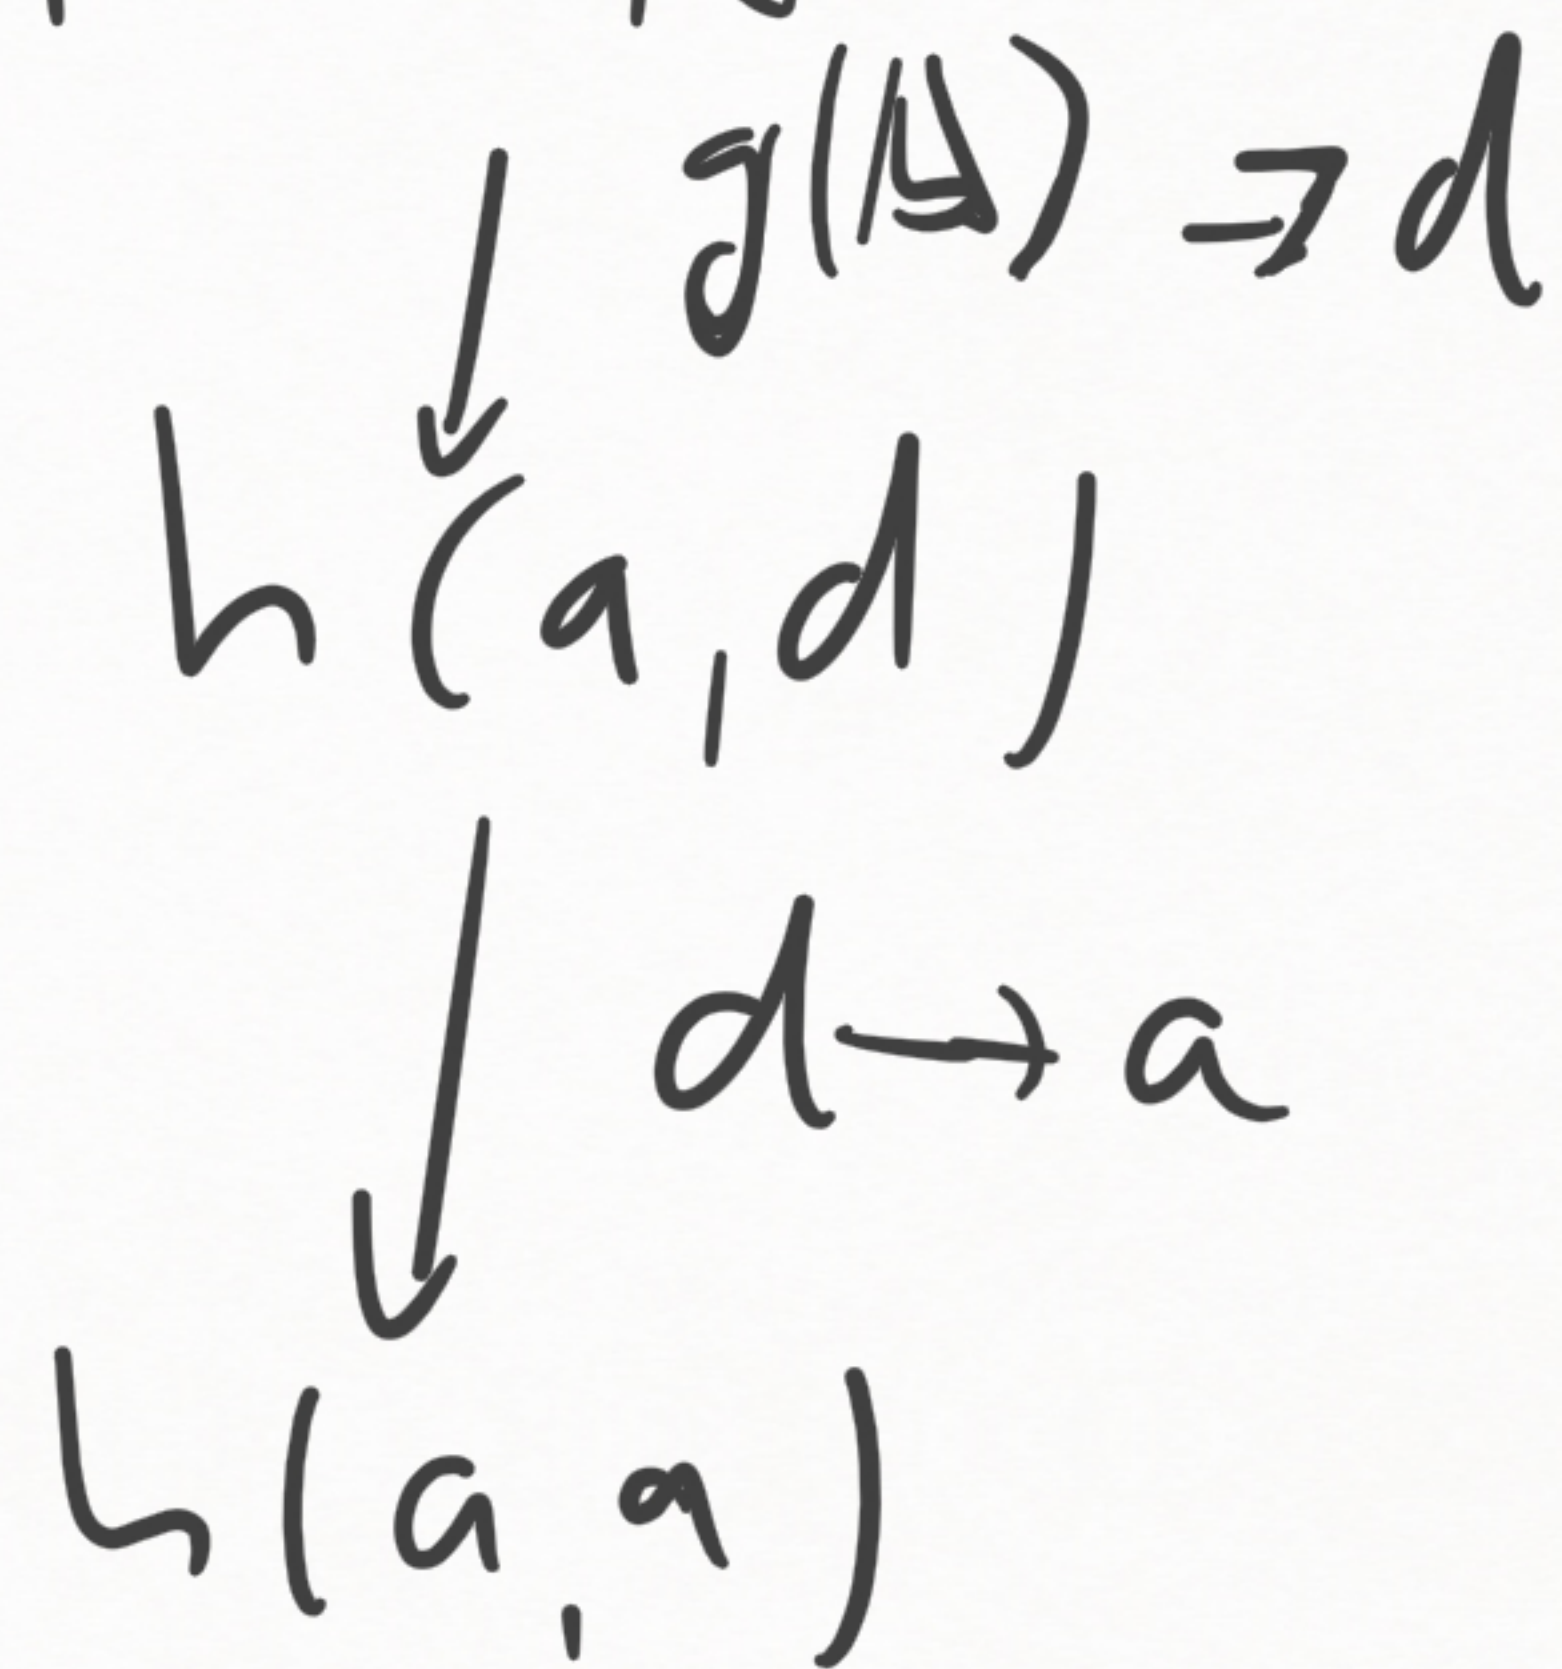 g( ) ⇒ d
h(a,d)
d → a
h(a,a)